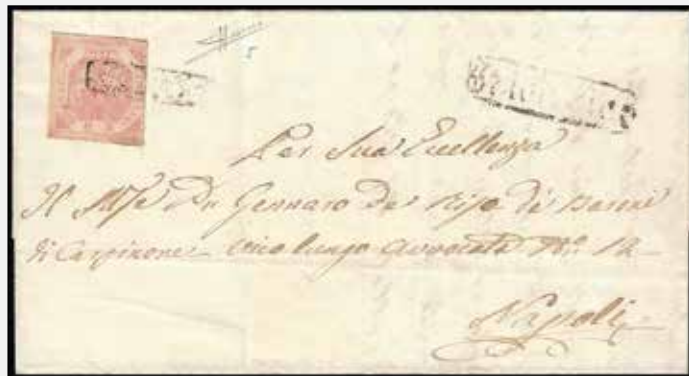 Per Sua Eccellenza
Il Mse Dn Gennaro de Riso de Baroni
di Carpinone vico lungo avvocata No 12
Napoli